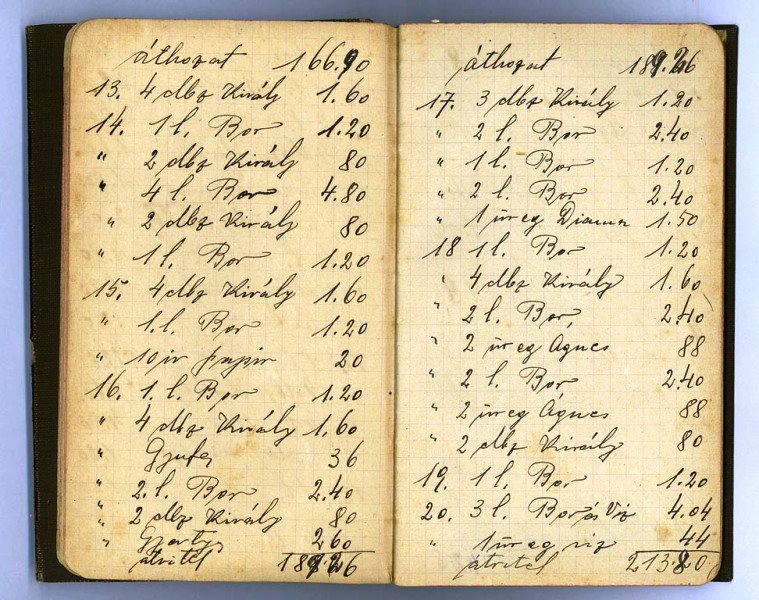 áthozat 166.90
13. 4 dbz Király 1.60
14. 1 l. Bor 1.20
" 2 dbz Király 80
" 4 l. Bor 4.80
" 2 dbz Király 80
" 1 l. Bor 1.20
15. 4 dbz Király 1.60
" 1. l. Bor 1.20
" 10 iv papir 20
16. 1. l. Bor 1.20
" 4 dbz Király 1.60
" Gyufa 36
" 2. l. Bor 2.40
" 2 dbz Király 80
" Gyertya 2 60
átvitel 189.26
áthozat 189.26
17. 3 dbz Király 1.20
" 2 l. Bor 2.40
" 1 l. Bor 1.20
" 2 l. Bor 2.40
" 1 üveg Diana 1.50
18 1 l. Bor 1.20
" 4 dbz Király 1.60
" 2 l. Bor, 2.40
" 2 üveg Ágnes 88
" 2 l. Bor 2.40
" 2 üveg Ágnes 88
" 2 dbz Király 80
19. 1 l. Bor 1.20
20. 3 l. Bor és Viz 4.04
" 1 üveg viz 44
átvitel 213.80